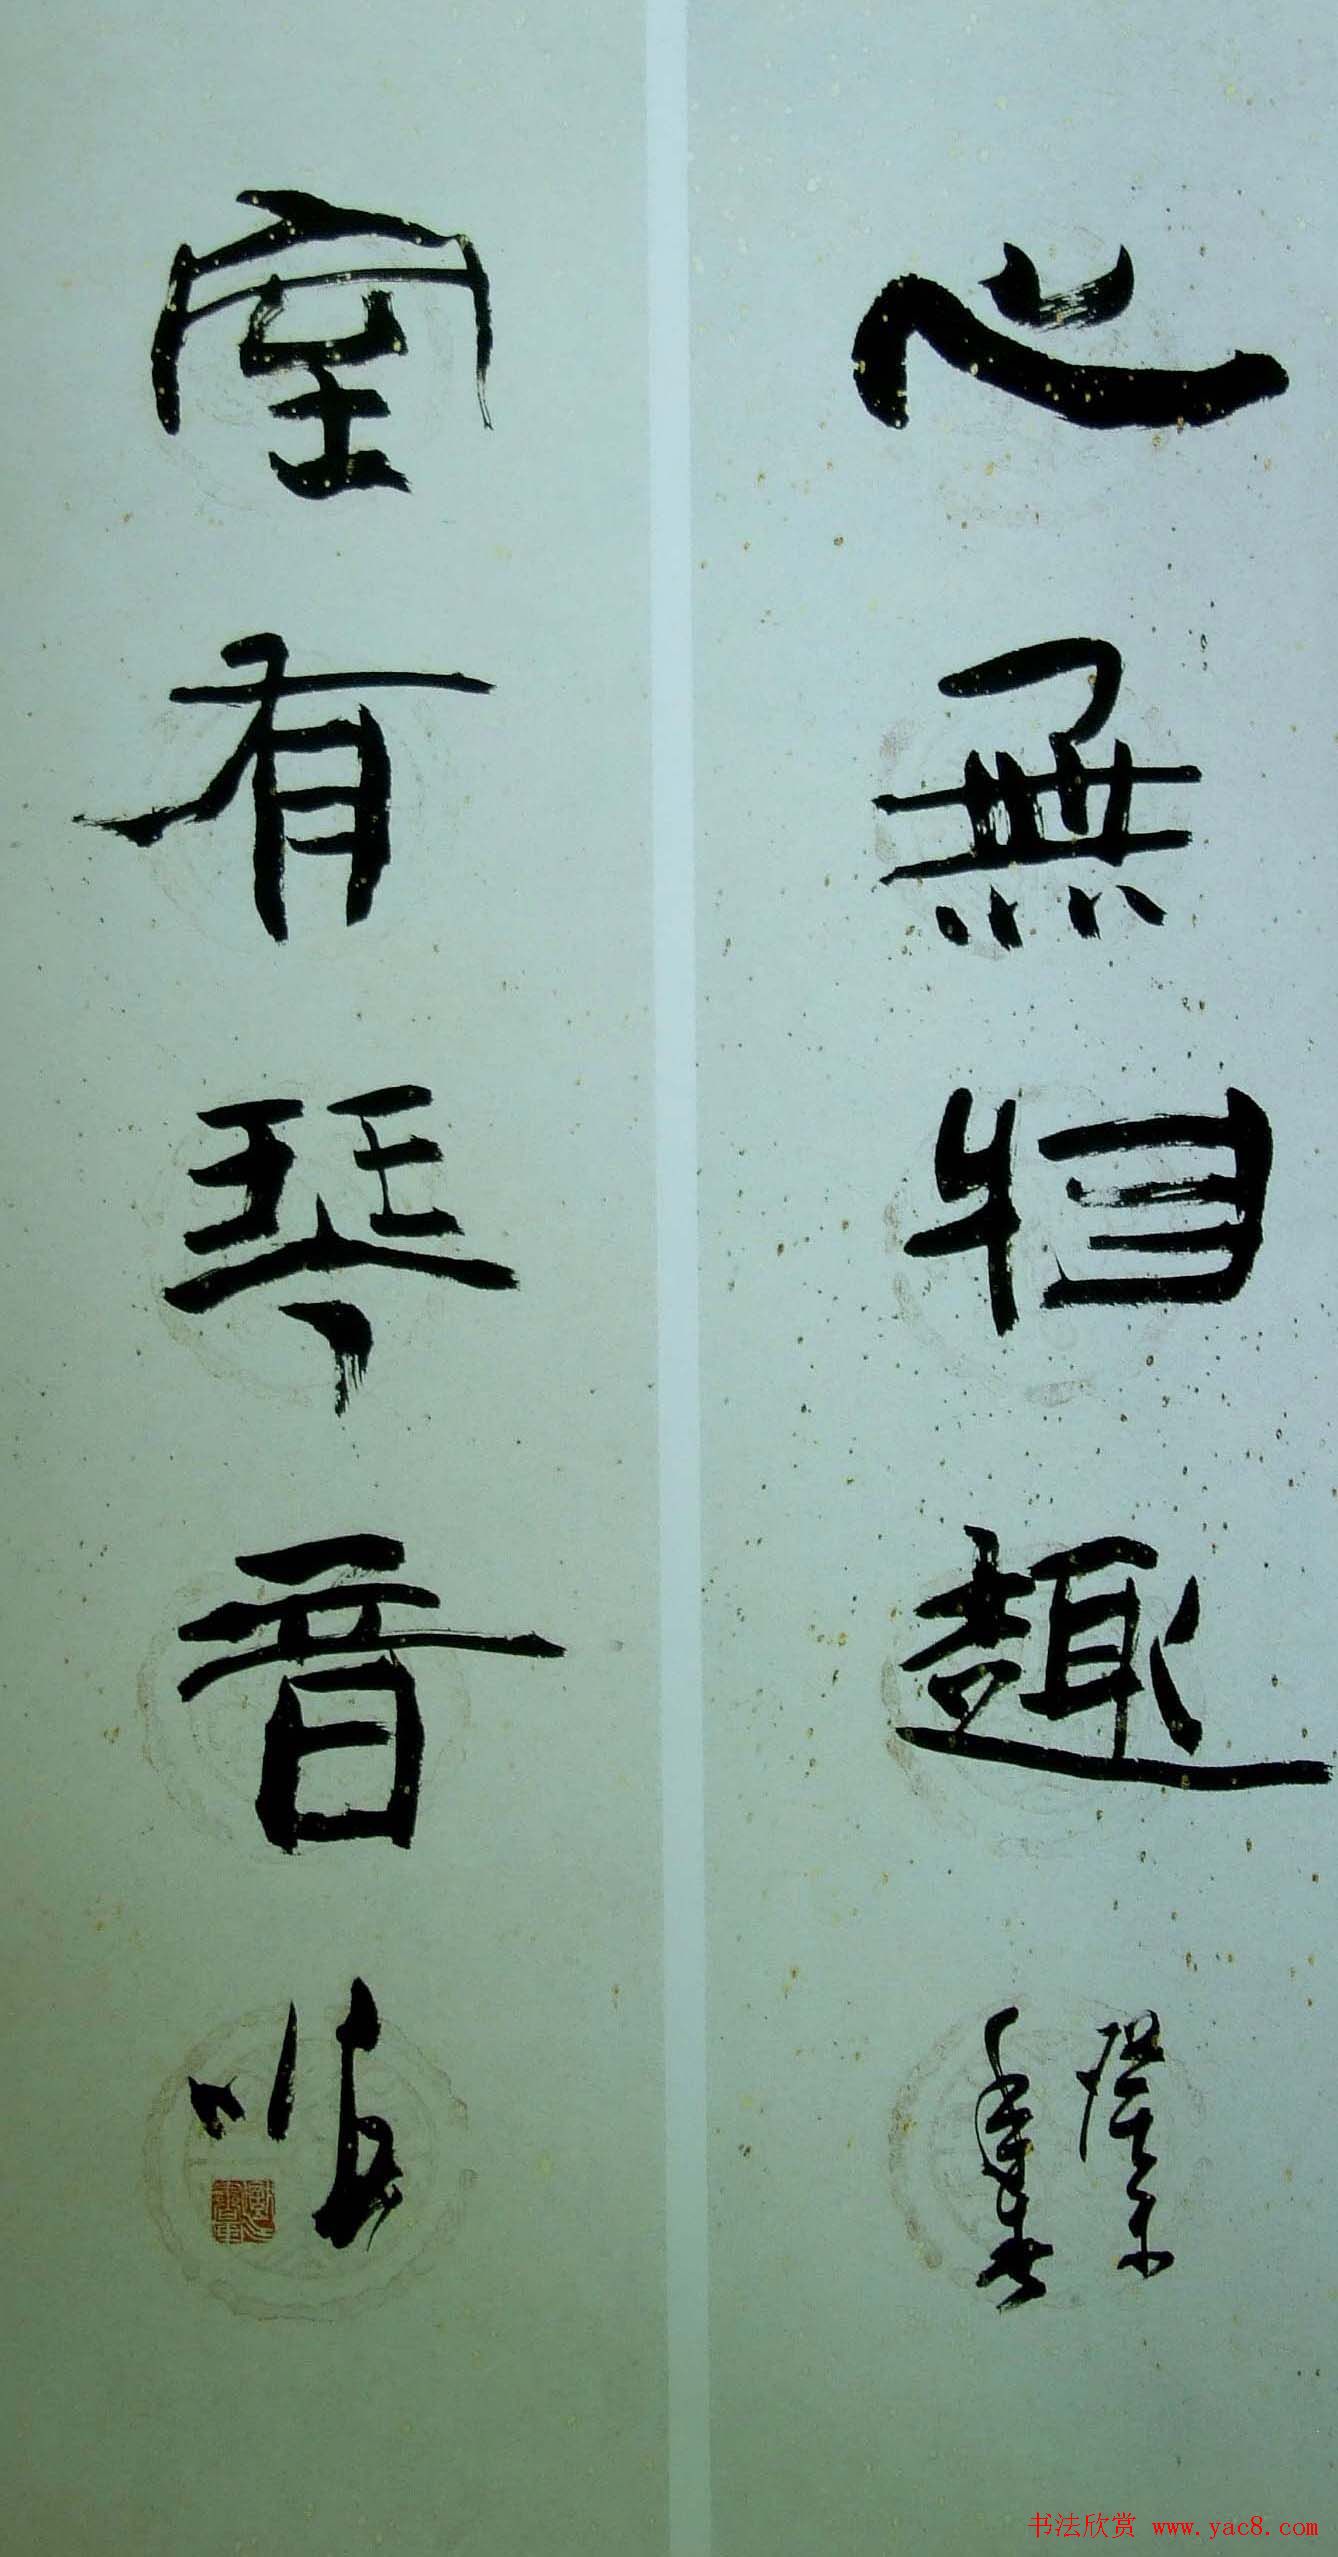 心無物趣
室有琴音
书法欣赏 www.yac8.com